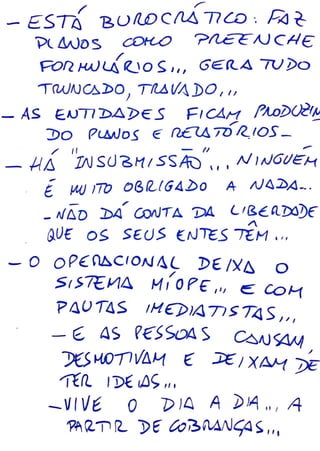 - ESTÁ BUROCRÁTICO: FAZ
PLANOS COMO PREENCHE
FORMULÁRIOS,,, GERA TUDO
TRUNCADO, TRAVADO,,,
- AS ENTIDADES FICAM PRODUZIN
DO PLANOS E RELATÓRIOS -
- HÁ "INSUBMISSÃO",,, NINGUÉM
É MUITO OBRIGADO A NADA...
- NÃO DÁ CONTA DA LIBERDADE
QUE OS SEUS ENTES TÊM ...
- O OPERACIONAL DEIXA O
SISTEMA MÍOPE,,, E COM
PAUTAS IMEDIATISTAS,,,
- E AS PESSOAS CANSAM,
DESMOTIVAM E DEIXAM DE
TER IDEIAS,,,
- VIVE O DIA A DIA,,, A
PARTIR DE COBRANÇAS,,,